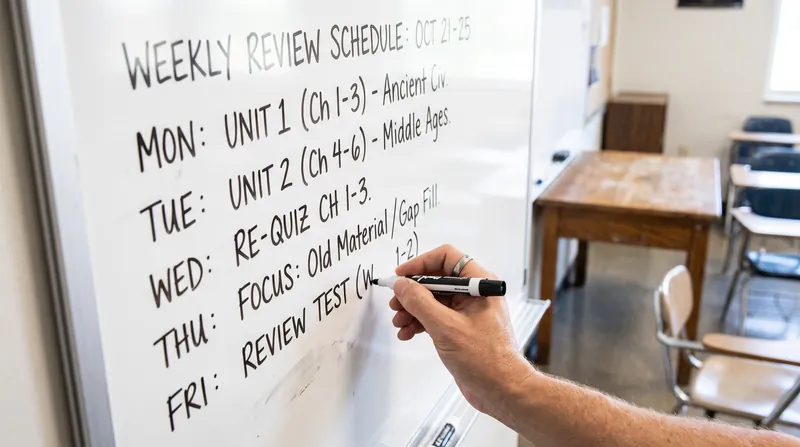 WEEKLY REVIEW SCHEDULE: OCT 21-25
MON: UNIT 1 (Ch 1-3) - Ancient Civ.
TUE: UNIT 2 (Ch 4-6) - Middle Ages.
WED: RE-QUIZ CH 1-3.
THU: FOCUS: Old Material/Gap Fill.
FRI: REVIEW TEST (W 1-2)